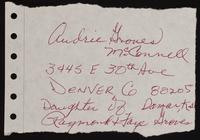 Audrie Groves
McConnell
3445 E 30th Ave
DENVER CO 80205
Daughter of
Raymond & Faye Groves